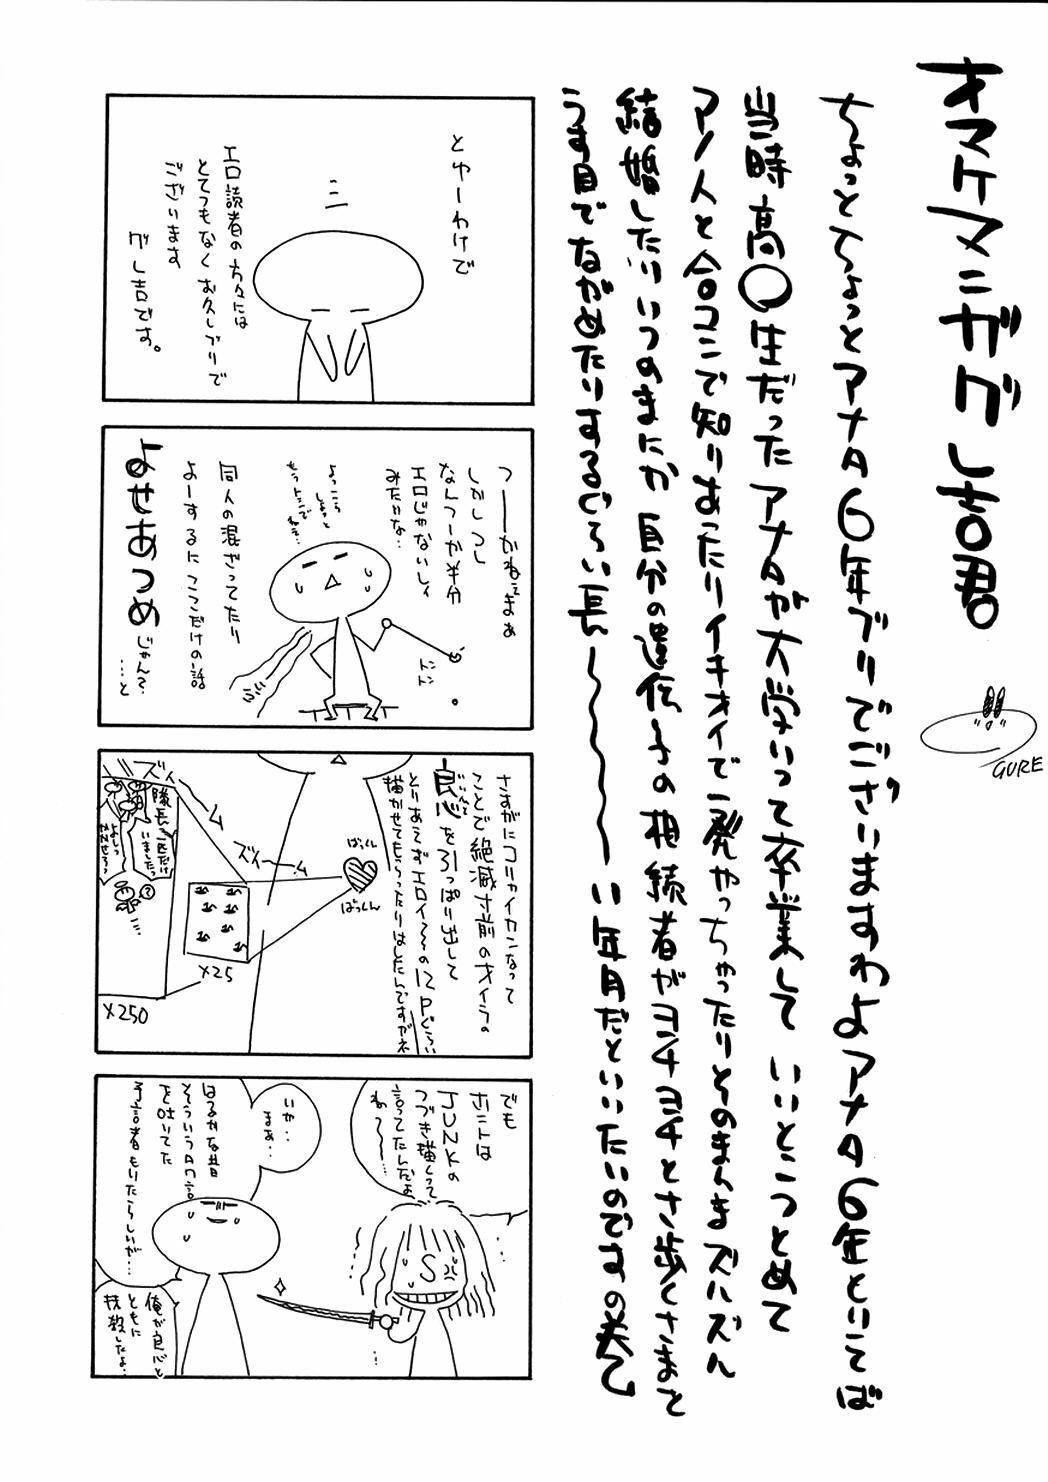 オマケマンガグレ吉君
GURE
ちょっとちょっとアナタ6年ブリでございますわよアナタ6年といてば
当時高〇生だったアナタが大学いって卒業していいとこつとめて
アノ人と合コンで知りあったりイキオイで一発やっちゃったりとのまんまズルズル
結婚したりいつのまにか自分の遺伝子の相続者がヨチヨチとさ歩くさまと
うす目でながめたりするぐらい長〜〜〜〜〜い年月だといいたいのですの
とゆーわけで
エロ読者の方々には
とてつもなくお久しブリで
ございます
グレ吉です。
つーかねぇまぁ
しかしつし
なんつーか半分
エロじゃないしィ
みたいな…
よっこら
しょっと
もうトシで
ねぇ…
ドン
ドン
同人の混ざってたり
よーするにここだけの話
よせあつめじゃん?
…と
さすがにコリャイカンなって
ことで絶滅寸前のオイラの
良心を引っぱり出して
とりあえずエロイ〜の12Pぐらい
描かせてもらったりはしたんですがネ
ばっくん
ばっくん
ズイーッ
ズィーッ
×25
×250
隊長一匹だけ
いましたっ
よしっ
でも
ホントは
JUNKの
つづき描くって
言ってたんだよ
ね〜〜…
いや‥
まぁ‥
はるかな昔
そういうたわ言
を吐いてた
予言者もいたらしいが…
俺が良心と
ともに
抹殺したよ…
S